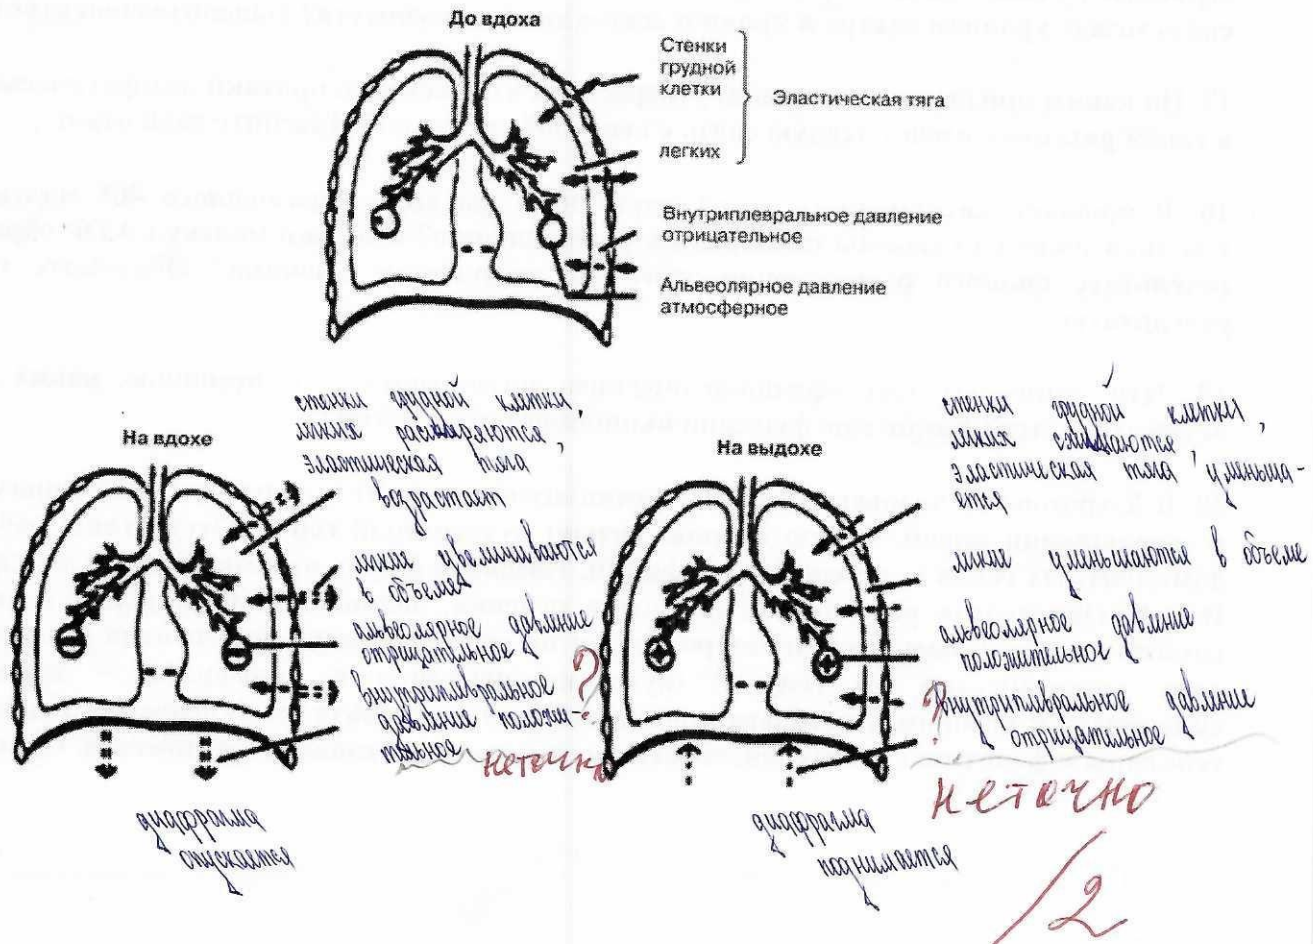 До вдоха
Стенки
грудной
клетки
Эластическая тяга
легких
Внутриплевральное давление
отрицательное
Альвеолярное давление
атмосферное
На вдохе
стенки грудной клетки,
легких расширяются,
эластическая тяга
возрастает
легкие увеличиваются
в объеме
альвеолярное давление
отрицательное
внутриплевральное ?
давление положи-
тельное
неточно
диафрагма
опускается
На выдохе
стенки грудной клетки,
легких сжимаются,
эластическая тяга уменьша-
ется
легкие уменьшаются в объеме
альвеолярное давление
положительное
? внутриплевральное давление
отрицательное
неточно
диафрагма
поднимается
/2